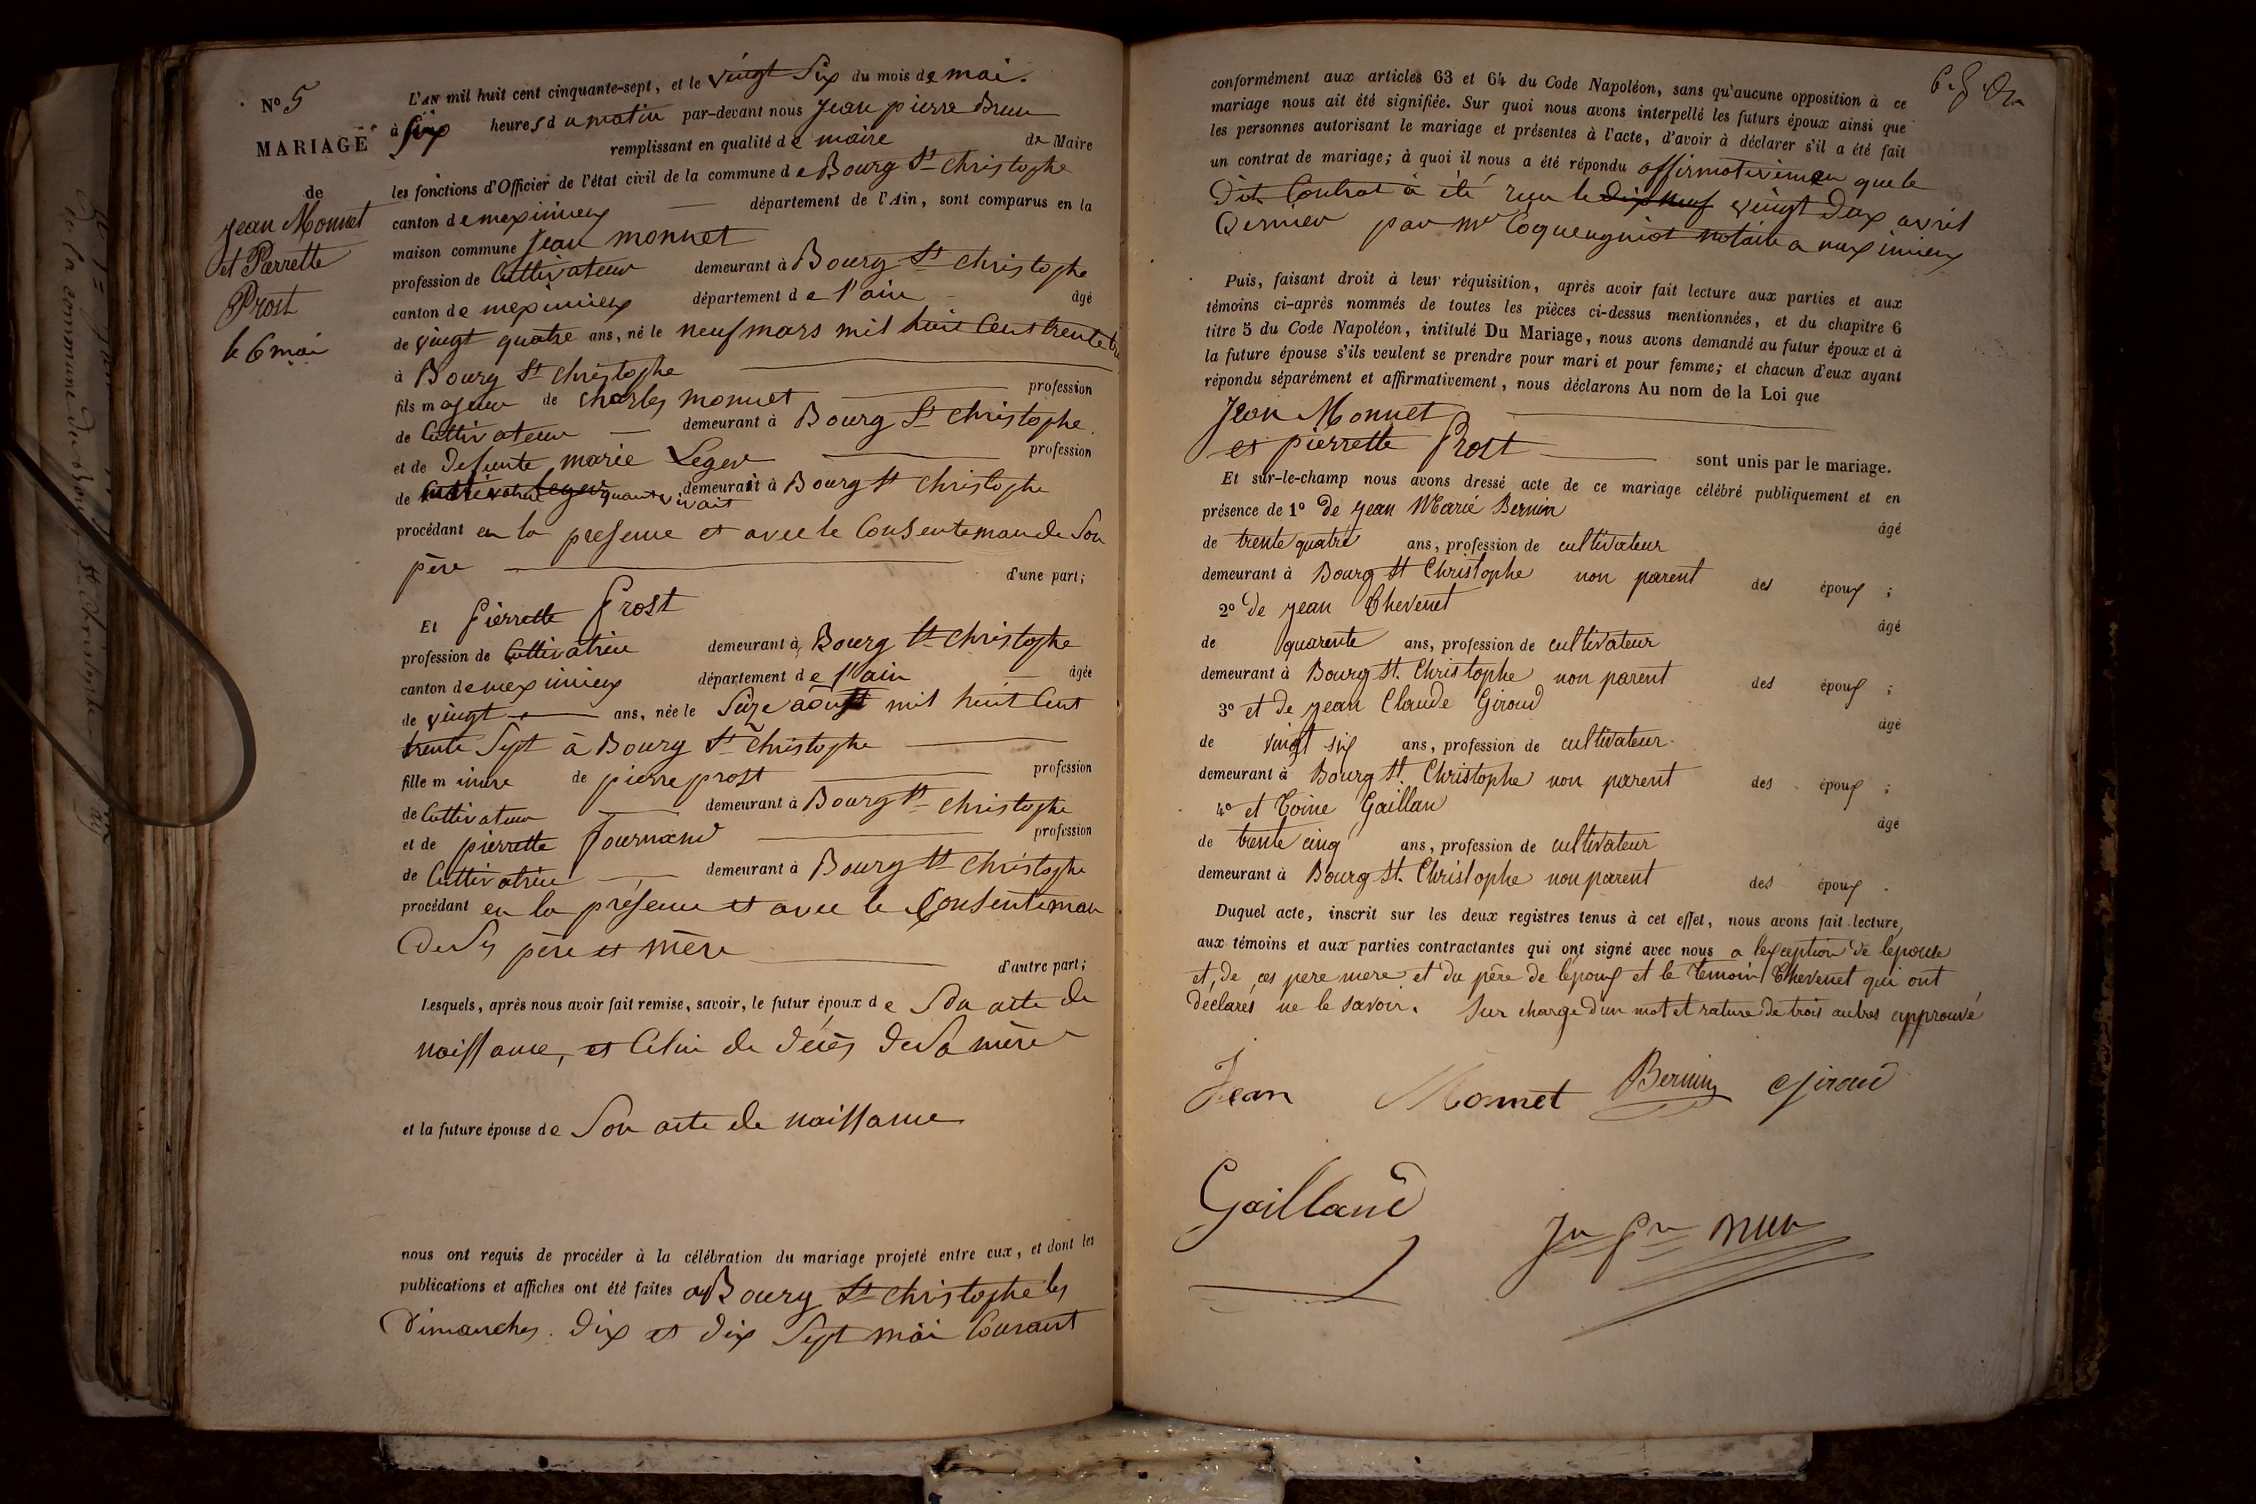 N° 5
MARIAGE
de
jean Monnet
et Pierrette
Prost
le 6 mai
L'AN mil huit cent cinquante-sept, et le vingt Six du mois de mai.
à Six heures du matin par-devant nous Jean pierre Brun
remplissant en qualité de maire de Maire
les fonctions d'Officier de l'état civil de la commune de Bourg St christophe
canton de meximieux département de l'Ain, sont comparus en la
maison commune Jean monnet
profession de Cultivateur demeurant à Bourg St christophe
canton de meximieux département de l'ain âgé
de vingt quatre ans, né le neuf mars mil huit Cent trente
à Bourg St christophe
fils majeur de charles monnet profession
de Cultivateur demeurant à Bourg St christophe
et de defunte marie Leger profession
de quand vivait demeurait à Bourg St christophe
procédant en la presence et avec le Consenteman de Son
père d'une part;
Et Pierrette Prost
profession de Cultivatrice demeurant à Bourg St christophe
canton de meximieux département de l'ain âgée
de vingt ans, née le Seize août mil huit Cent
trente Sept à Bourg St christophe
fille mineure de pierre prost profession
de Cultivateur demeurant à Bourg St christophe
et de pierrette fournand profession
de Cultivatrice demeurant à Bourg St christophe
procédant en la présence et avec le Consenteman
de Ses père et mère d'autre part;
Lesquels, après nous avoir fait remise, savoir, le futur époux de Son acte de
naissance, et Celui de décès de Sa mère
et la future épouse de Son acte de naissance
nous ont requis de procéder à la célébration du mariage projeté entre eux, et dont les
publications et affiches ont été faites à Bourg St christophe les
dimanches dix et dix Sept mai Courant
conformément aux articles 63 et 64 du Code Napoléon, sans qu'aucune opposition à ce
mariage nous ait été signifiée. Sur quoi nous avons interpellé les futurs époux ainsi que
les personnes autorisant le mariage et présentes à l'acte, d'avoir à déclarer s'il a été fait
un contrat de mariage; à quoi il nous a été répondu affirmativement que le
Dit Contrat à été reçu le dix neuf vingt Deux avril
Dernier par me Coquengniot notaire a meximieux
Puis, faisant droit à leur réquisition, après avoir fait lecture aux parties et aux
témoins ci-après nommés de toutes les pièces ci-dessus mentionnées, et du chapitre 6
titre 5 du Code Napoléon, intitulé Du Mariage, nous avons demandé au futur époux et à
la future épouse s'ils veulent se prendre pour mari et pour femme; et chacun d'eux ayant
répondu séparément et affirmativement, nous déclarons Au nom de la Loi que
Jean Monnet
et pierrette Prost sont unis par le mariage.
Et sur-le-champ nous avons dressé acte de ce mariage célébré publiquement et en
présence de 1° de jean Marie Bernin âgé
de trente quatre ans, profession de cultivateur
demeurant à Bourg St Christophe non parent des époux ;
2° de jean Chevenet âgé
de quarente ans, profession de cultivateur
demeurant à Bourg St. Christophe non parent des époux ;
3° et de jean Claude Giroud âgé
de vingt six ans, profession de cultivateur
demeurant à Bourg St. Christophe non parent des époux ;
4° et Toine Gaillan âgé
de trente cinq ans, profession de cultivateur
demeurant à Bourg St. Christophe non parent des époux .
Duquel acte, inscrit sur les deux registres tenus à cet effet, nous avons fait lecture
aux témoins et aux parties contractantes qui ont signé avec nous a lexception de lepouse
et, de ces pere mere et du père de lépoux et le temoin Chevenet qui ont
déclarés ne le savoir. Sur charge d'un mot et rature de trois autres approuvé
Jean Monnet Bernin Giroud
Gailland
Jn Pre Brun